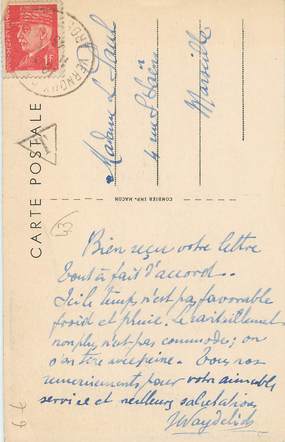 1F
VERNOUX
CARTE POSTALE
Madame L Paul
4 rue St Saëns
Marseille
COMBIER IMP. MACON
43
Bien reçu votre lettre
tout à fait d'accord..
Ici le temps n'est pas favorable
froid et pluie. Le ravitaillement
non plus n'est pas commode; on
s'en tire avec peine. Tous nos
remerciements pour votre aimable
service et meilleures salutations